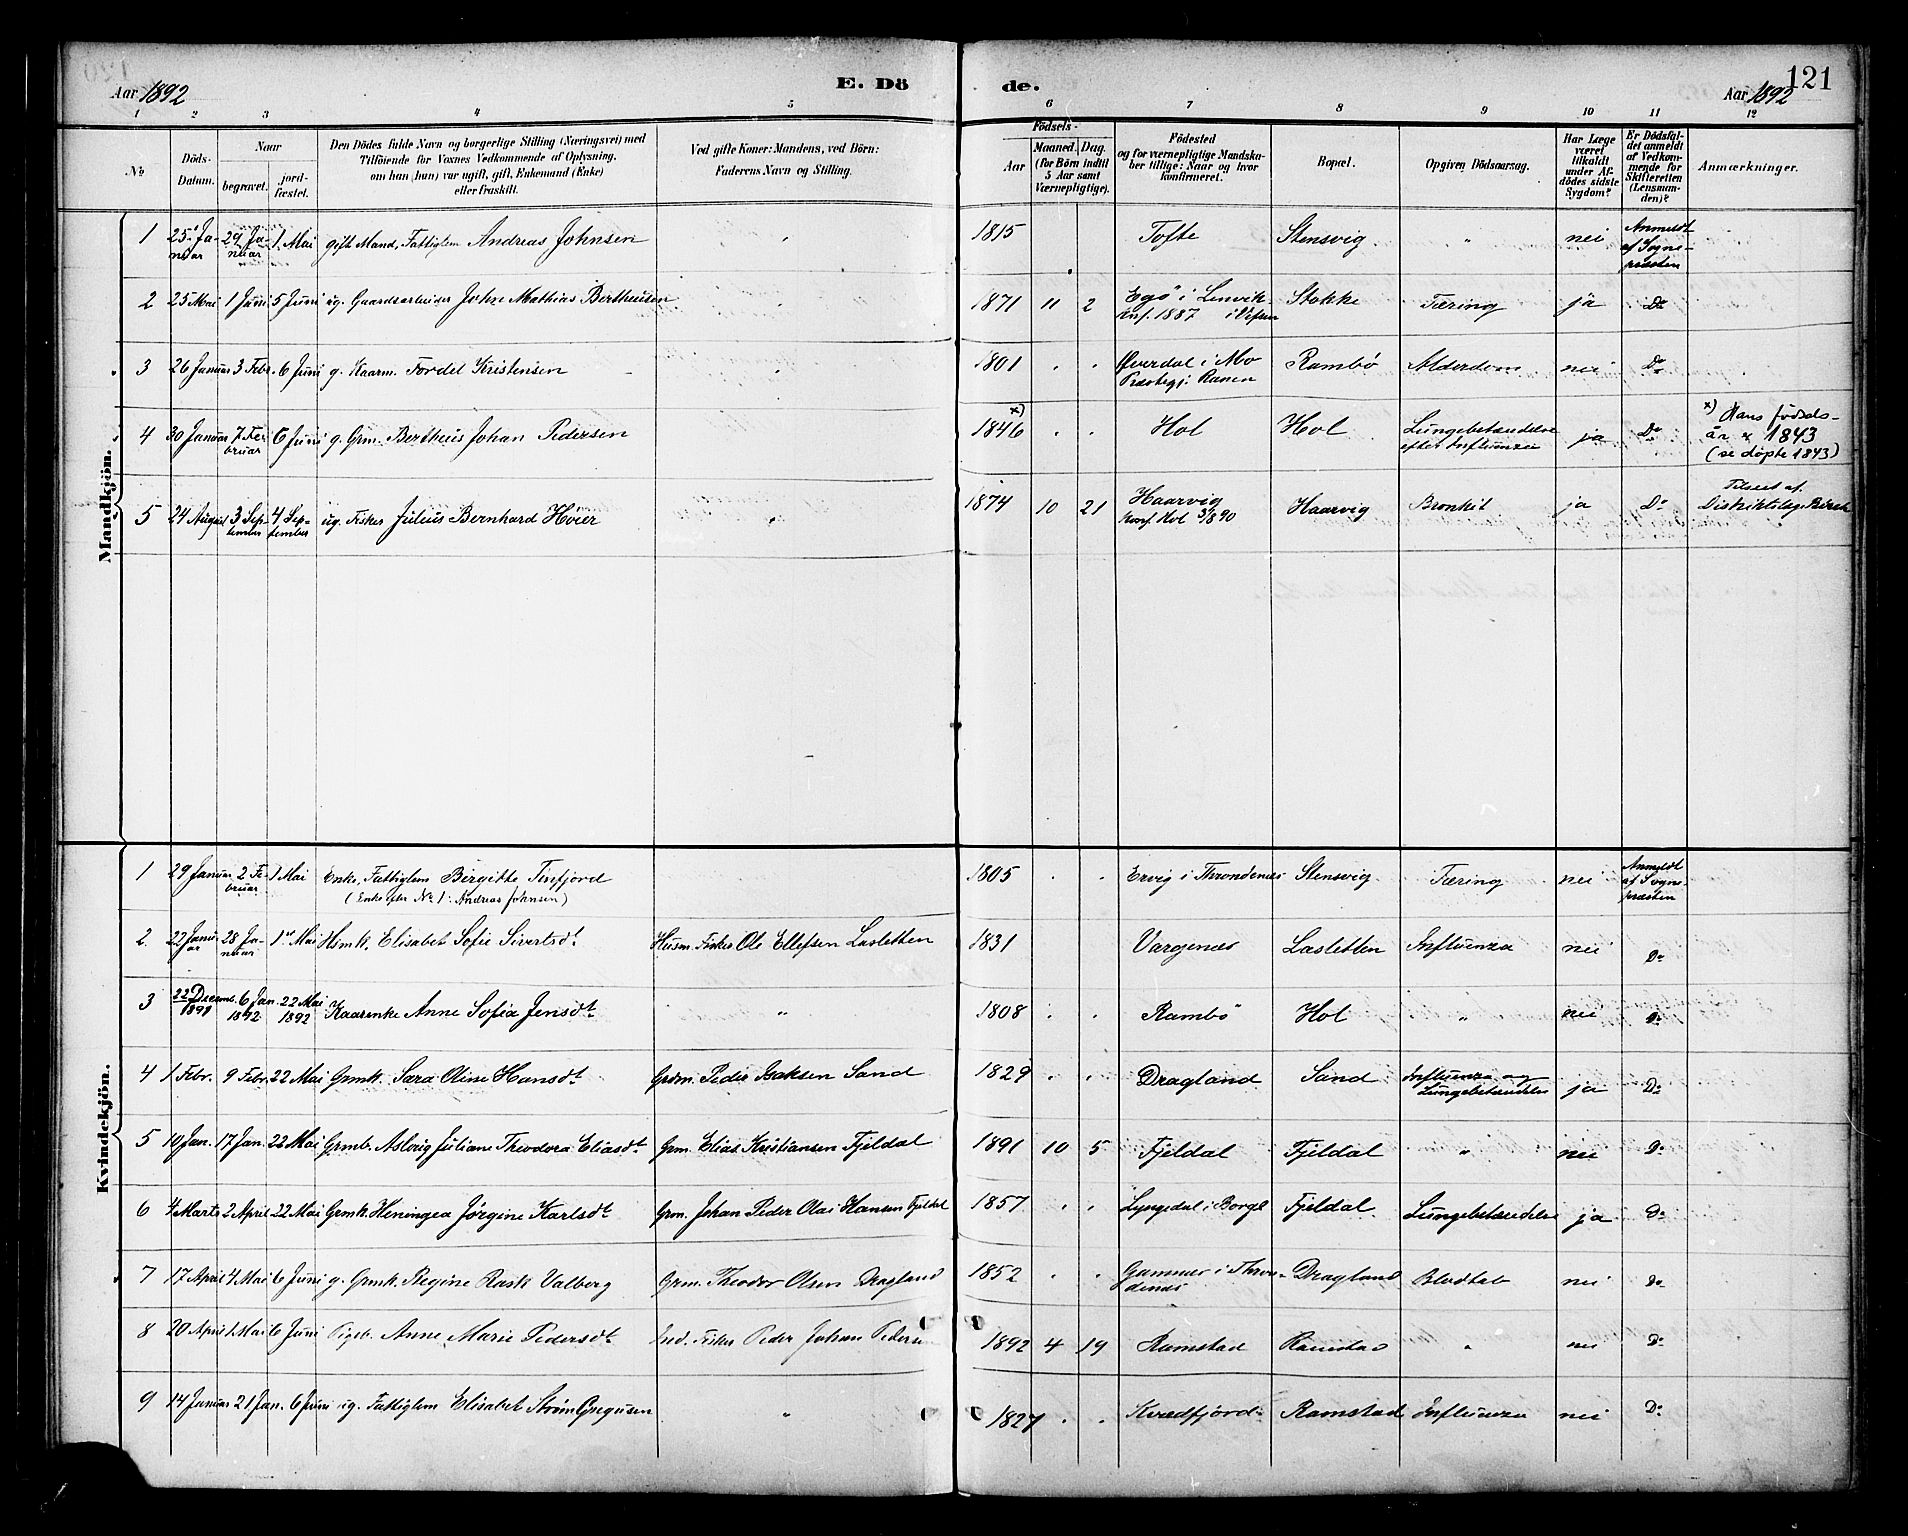 Aar 1892
E. Dö
de.
Aar 1892
121
1 2 3 4 5 6 7 8 9 10 11 12
No
Döds-
Datum.
Naar
begravet.
jord-
fæstet.
Den Dödes fulde Navn og borgerlige Stilling (Næringsvei) med
Tilföiende for Voxnes Vedkommende af Oplysning.
om han (hun) var ugift, gift, Enkemand (Enke)
eller fraskilt.
Ved gifte Koner: Mandens, ved Börn:
Faderens Navn og Stilling.
Födsels-
Aar
Maaned. Dag.
(for Börn indtil
5 Aar samt
Værnepligtige).
Födested
og for værnepligtige Mandska-
ber tillige: Naar og hvor
konfirmeret.
Bopæl.
Opgiven Dödsaarsag.
Har Læge
været
tilkaldt
under Af-
dödes sidste
Sygdom?
Er Dödsfal-
det anmeldt
af Vedkom-
mende for
Skifteretten
(Lensman-
den)?
Anmærkninger.
Mandkjön.
1 25 Ja-
nuar 29 Ja-
nuar 1 Mai gift Mand, Fattiglem Andreas Johnsen " 1815 Tofte Stensvig " nei Anmeldt
af Sogne-
præsten
2 25 Mai 1 Juni 5 Juni ug. Gaardsarbeider John Mathias Bertheusen " 1871 11 2 Egö i Lenvik Stokke Tæring ja Do
konf. 1887 i Vefsen
3 26 Januar 3 Febr. 6 Juni g. Kaarm. Fordel Kristensen " 1801 . . Øverdal i Mo Rambö Alderdom nei Do
Præstegj. Ranen
4 30 Januar 7 Fee
bruar 6 Juni g. Grm. Bertheus Johan Pedersen 1846 x) . . Hol Hol Lungebetændelse
efter Influenza ja Do x) Hans födsels-
år er 1843
(se döpte 1843)
5 24 August 3 Sep-
tember 4 Sep-
tember ug. Fisker Julius Bernhard Hveier " 1874 10 21 Haarvig
konf Hol 3/8 90 Haarvig Bronkit ja Do Tilseet af
Distriktslæge
Kvindekjön.
1 29 Januar 2 Fe-
bruar 1 Mai Enke, Fattiglem Birgitte Tinfjord 1805 . . Ervig i Throndenes Stensvig Tæring nei Anmeldt
af Sogne-
præsten
(Enke efter No 1: Andreas Johnsen)
2. 22 Janu-
ar 28 Ja-
nuar 1 Mai Hsmk. Elisabet Sofie Sivertsdt Husm. Fisker Ole Ellefsen Lasletten 1831 Vargenes Lasletten Influenza nei Do
3 22 Decemb.
1891 6 Jan.
1892 22 Mai
1892 Kaarenke Anne Sofia Jensdt. " 1808 . . Rambö Hol " nei Do
4 1 Febr. 9 Febr. 22 Mai Grmk. Sara Oline Hansdt Grdm. Peder Isaksen Sand 1829 . . Dragland Sand Influenza og
Lungebetændelse ja Do
5 10 Jan. 17 Jan. 22 Mai Grmb. Aslovig Juliane Theodora Eliasdt. Grm. Elias Kristiansen Fjeldal 1891 10 5 Fjeldal Fjeldal " nei Do
6 4 Marts 2 April 22 Mai Grmk. Heningea Jörgine Karlsdt Grm. Johan Peder Olai Hansen Fjeldal 1857 . . Lyngedal i Borge Fjeldal. Lungebetændelse ja Do
7 17 April 4 Mai 6 Juni g. Grmk. Regine Rask Valberg Grm. Theodor Olsen Dragland 1852 . . Gamnes i Thron-
denes Dragland Blodtab nei Do
8 20 April 1 Mai 6 Juni Pigeb. Anne Marie Pedersdt Ind. Fisker Peder Johan Pederse 1892 4 19 Ramstad Ramstad " nei Do
9 14 Januar 21 Jan. 6 Juni ug. Fattiglem Elisabet Ström Gregusen " 1827 . . Kvædfjord Ramstad Influenza nei Do